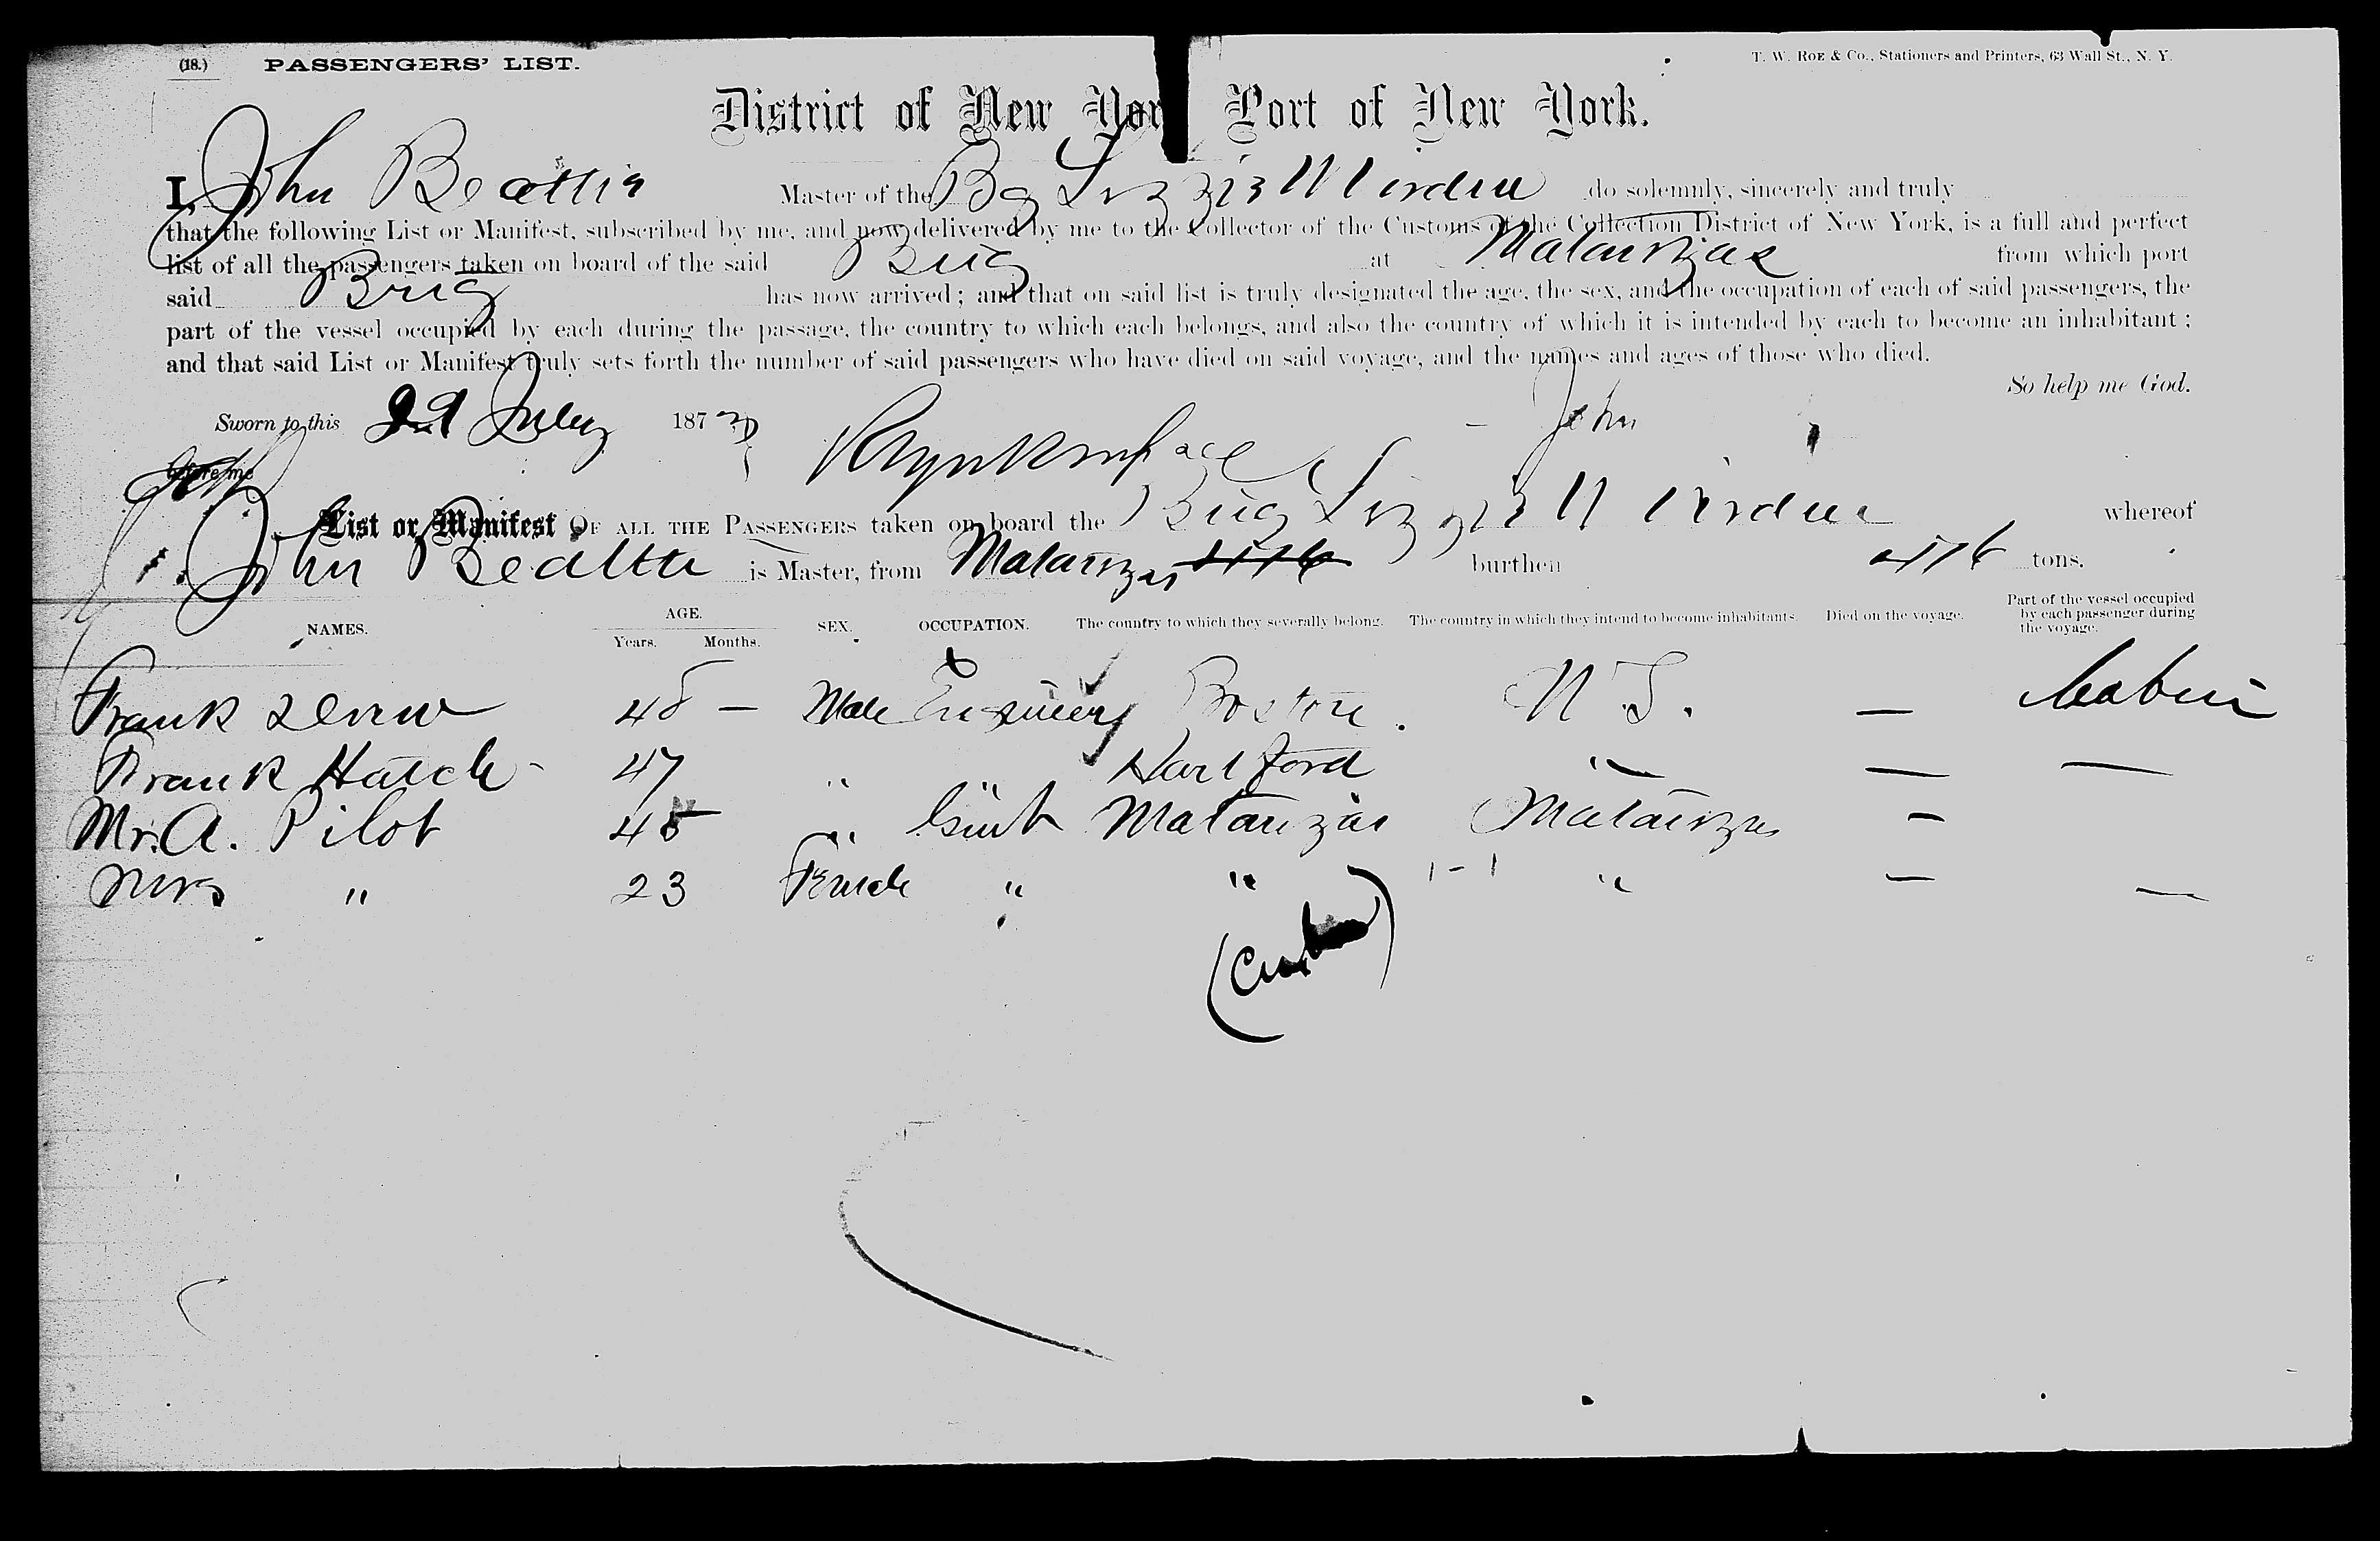 (18.) PASSENGERS' LIST.
T. W. ROE & Co., Stationers and Printers, 63 Wall St., N. Y.
District of New Yor Port of New York.
I, John Beattie Master of the Bg Lizzie do solemnly, sincerely and truly
that the following List or Manifest, subscribed by me, and now delivered by me to the Collector of the Customs of the Collection District of New York, is a full and perfect
list of all the passengers taken on board of the said Brig at Matanzas from which port
said Brig has now arrived; and that on said list is truly designated the age, the sex, and the occupation of each of said passengers, the
part of the vessel occupied by each during the passage, the country to which each belongs, and also the country of which it is intended by each to become an inhabitant;
and that said List or Manifest truly sets forth the number of said passengers who have died on said voyage, and the names and ages of those who died.
So help me God.
Sworn to this July 1873 John
before me
List or Manifest OF ALL THE PASSENGERS taken on board the Brig Lizzie whereof
John Beattie is Master, from Matanzas burthen tons.
NAMES. AGE. Years. Months. SEX. OCCUPATION. The country to which they severally belong. The country in which they intend to become inhabitants. Died on the voyage. Part of the vessel occupied by each passenger during the voyage.
Frank 48 — Male Engineer Boston — Cabin
Frank Hatch 47 " " Hartford " — —
Mr. A. Pilot 45 " Matanzas Matanzas —
Mrs " 23 Female " " " — —
(Cuba)